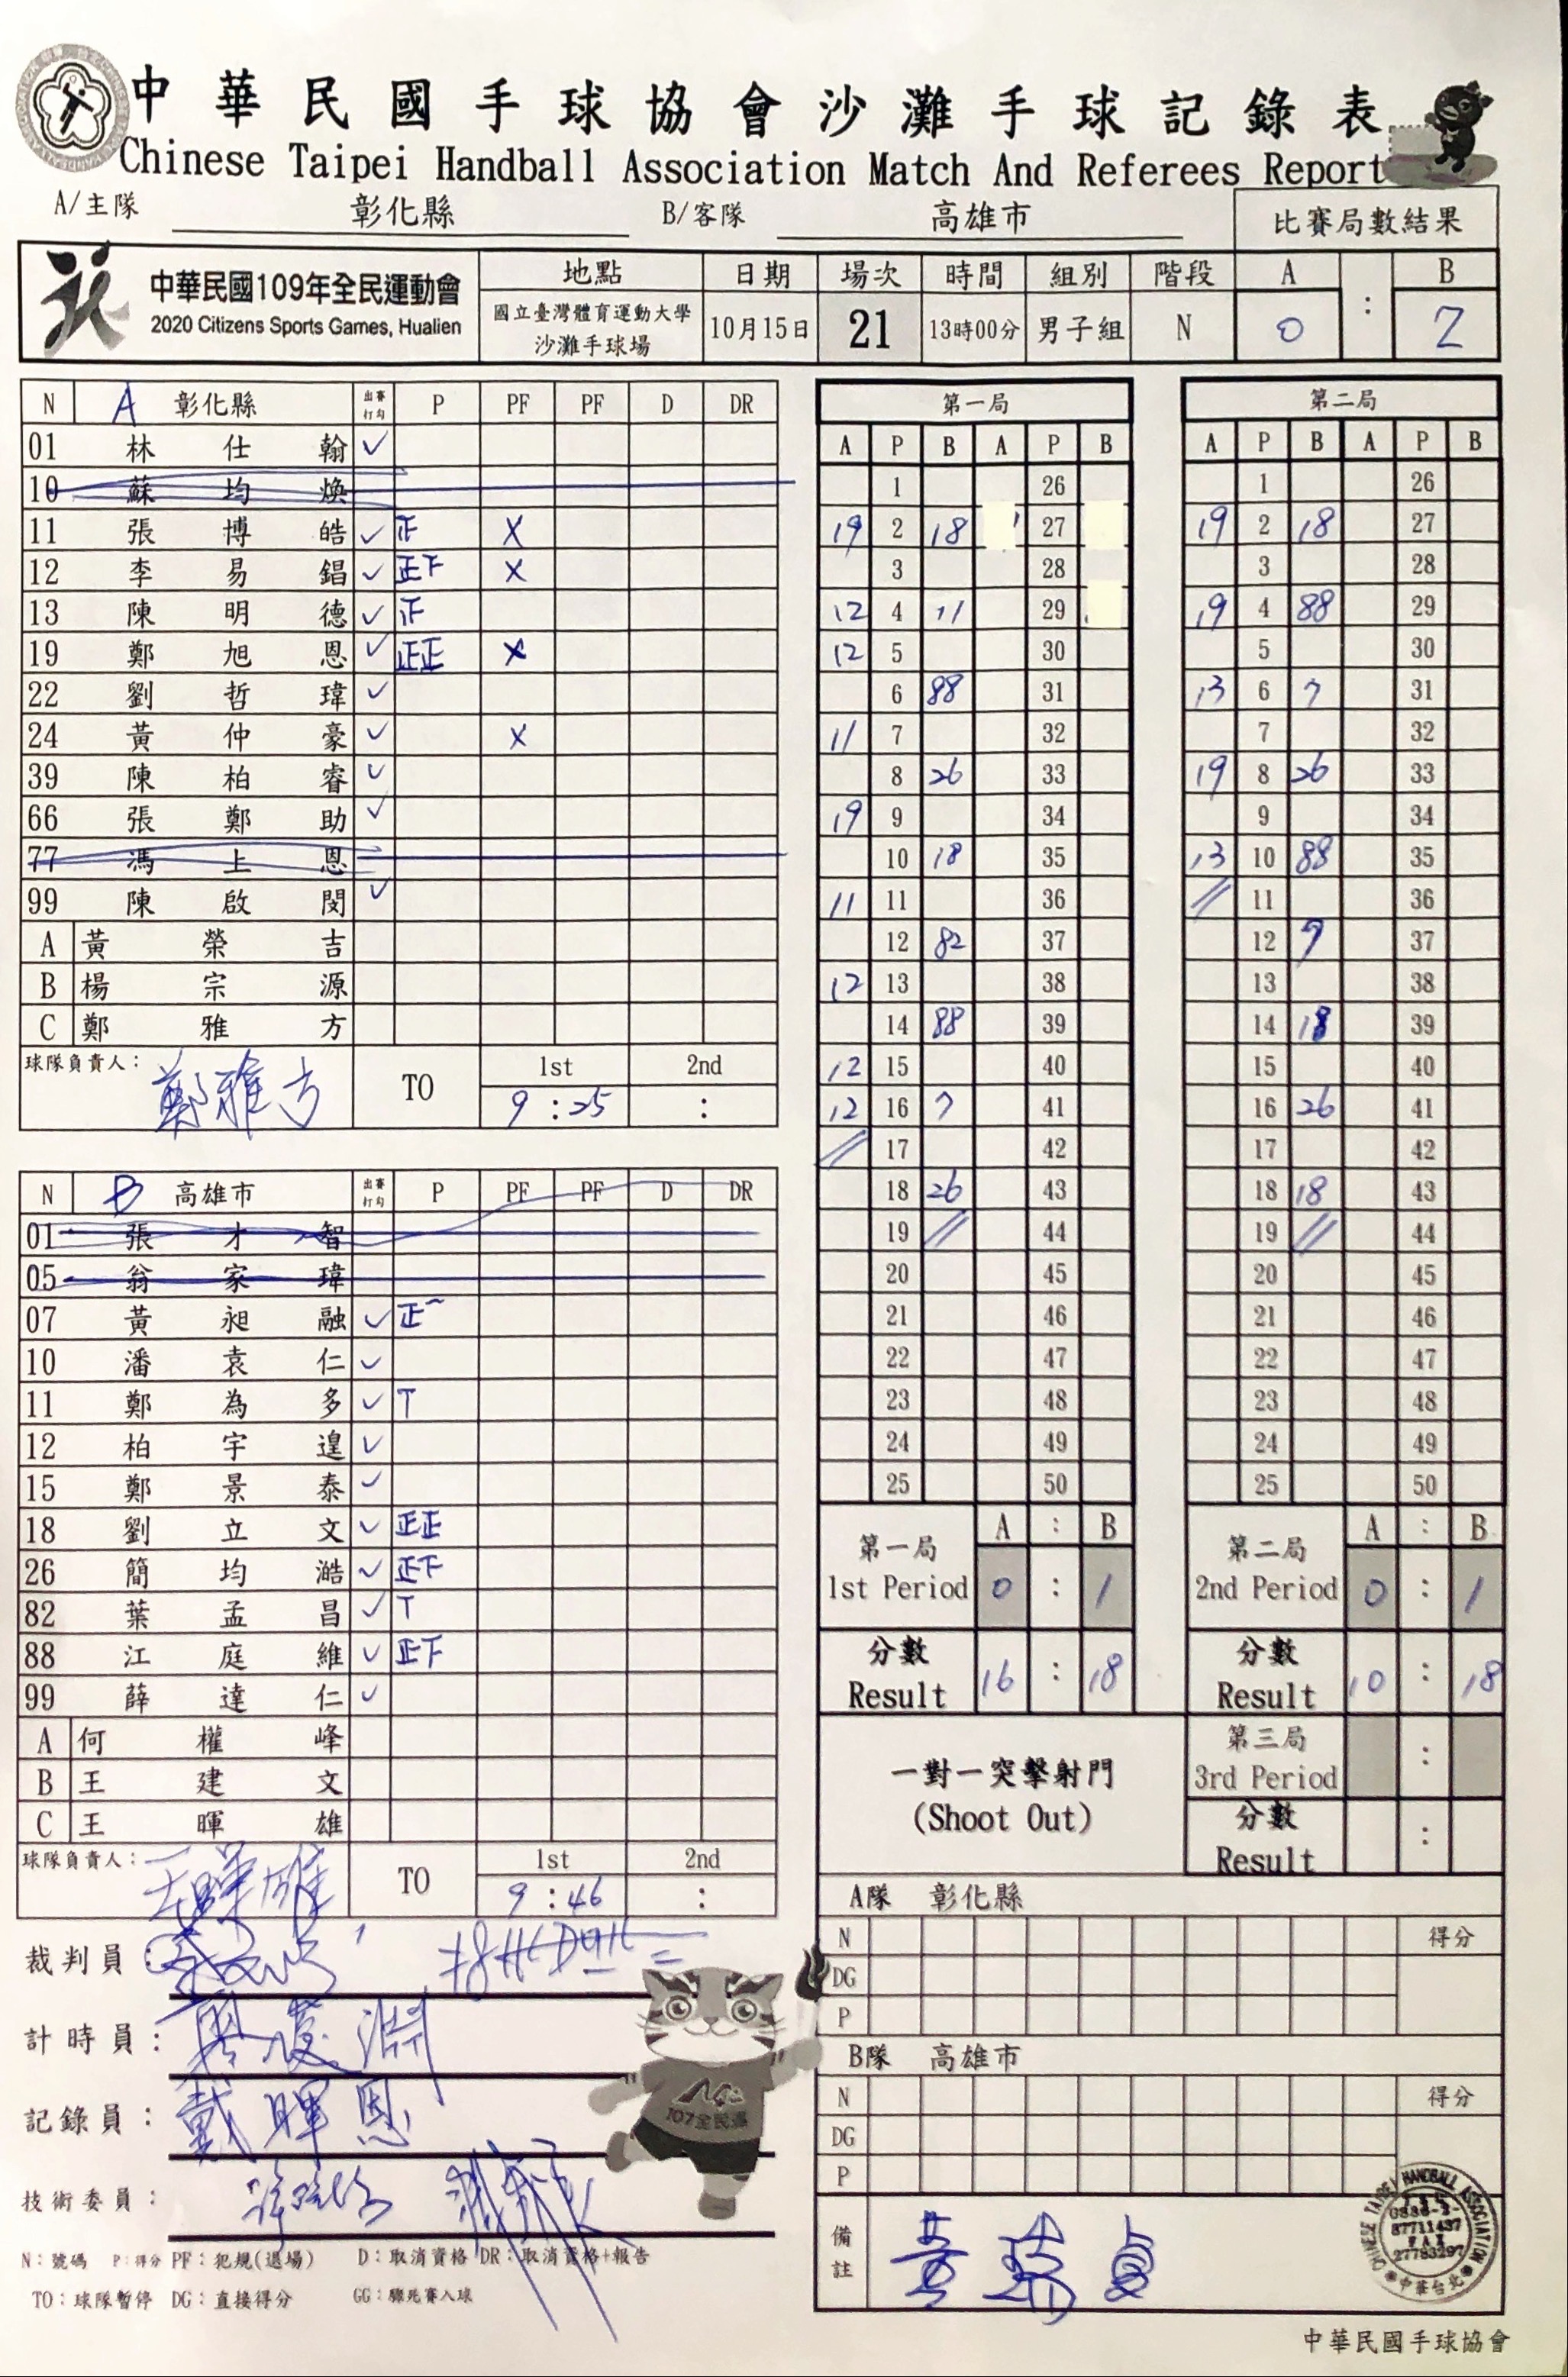 中華民國手球協會沙灘手球記錄表
Chinese Taipei Handball Association Match And Referees Report
A/主隊 彰化縣 B/客隊 高雄市 比賽局數結果
中華民國109年全民運動會
2020 Citizens Sports Games, Hualien
地點 日期 場次 時間 組別 階段 A : B
國立臺灣體育運動大學
沙灘手球場
10月15日 21 13時00分 男子組 N 0 2
N A 彰化縣 出賽打勾 P PF PF D DR
01 林仕翰 ✓
10 蘇均煥
11 張博皓 ✓ 正 X
12 李易錩 ✓ 正下 X
13 陳明德 ✓ 正
19 鄭旭恩 ✓ 正正 X
22 劉哲瑋 ✓
24 黃仲豪 ✓ X
39 陳柏睿 ✓
66 張鄭助 ✓
77 馮上恩
99 陳啟閔 ✓
A 黃榮吉
B 楊宗源
C 鄭雅方
球隊負責人: 鄭雅方 TO 1st 2nd
9:25 :
N B 高雄市 出賽打勾 P PF PF D DR
01 張才智
05 翁家瑋
07 黃昶融 ✓ 正一
10 潘袁仁 ✓
11 鄭為多 ✓ T
12 柏宇遑 ✓
15 鄭景泰 ✓
18 劉立文 ✓ 正正
26 簡均澔 ✓ 正下
82 葉孟昌 ✓ T
88 江庭維 ✓ 正下
99 薛達仁 ✓
A 何權峰
B 王建文
C 王暉雄
球隊負責人: 王暉雄 TO 1st 2nd
9:46 :
裁判員:
計時員:
記錄員: 戴暉恩
技術委員:
N:號碼 P:得分 PF:犯規(退場) D:取消資格 DR:取消資格+報告
TO:球隊暫停 DG:直接得分 GG:驟死賽入球
107全民運
第一局
A P B A P B
1 26
19 2 18 27
3 28
12 4 11 29
12 5 30
6 88 31
11 7 32
8 26 33
19 9 34
10 18 35
11 11 36
12 82 37
12 13 38
14 88 39
12 15 40
12 16 7 41
// 17 42
18 26 43
19 // 44
20 45
21 46
22 47
23 48
24 49
25 50
第一局 A : B
1st Period 0 : 1
分數
Result 16 : 18
第二局
A P B A P B
1 26
19 2 18 27
3 28
19 4 88 29
5 30
13 6 7 31
7 32
19 8 26 33
9 34
13 10 88 35
// 11 36
12 7 37
13 38
14 18 39
15 40
16 26 41
17 42
18 18 43
19 // 44
20 45
21 46
22 47
23 48
24 49
25 50
第二局 A : B
2nd Period 0 : 1
分數
Result 10 : 18
一對一突擊射門
(Shoot Out)
第三局
3rd Period :
分數
Result :
A隊 彰化縣
N 得分
DG
P
B隊 高雄市
N 得分
DG
P
備註 黃瑞貞
CHINESE TAIPEI HANDBALL ASSOCIATION
TEL
0886-2-
87711437
FAX
27783297
中華台北
中華民國手球協會